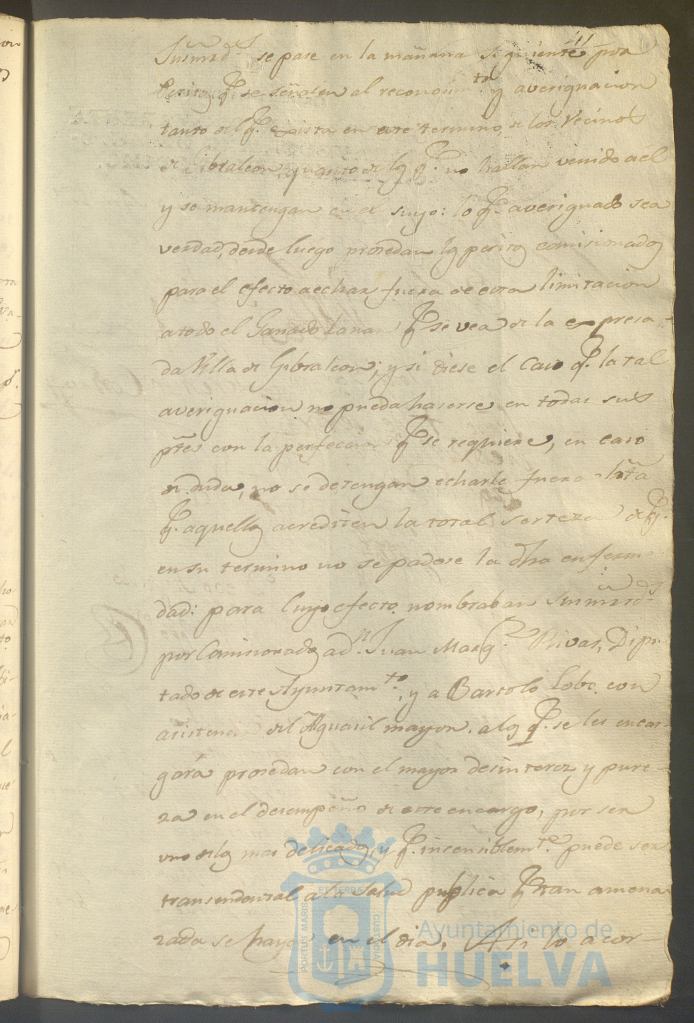 41
Susmrds se pase en la mañana siguiente por
Peritos qe. se señalen al reconocimto. y averiguacion
tanto del qe. exista en este termino, de los Vecinos
de Gibraleon, quanto de los qe. no hallan venido a el
y se mantengan en el suyo: lo qe. averiguado sea
verdad, desde luego prosedan los peritos comisionados
para el efecto a echar fuera de esta limitacion
a todo el Ganado lanar qe. se vea de la expresa-
da Villa de Gibraleon; y si diese el caso qe. la tal
averiguacion no pueda haserse en todas sus
ptes con la perfeccion qe. se requiere, en caso
de duda, no se detengan echarle fuera hta
qe. aquellos acrediten la total serteza de qe.
en su termino no se padese la dha enferme-
dad: para cuyo efecto nombraban susmrds
por Comisionados a dn. Juan Marqz. Rivas, Dipu-
tado de este Ayuntamto., y a Bartolo Lobo, con
asistencia del Alguasil mayor, a los qe. se les encar-
gará prosedan con el mayor desinteres, y pure-
za en el desempeño de este encargo, por ser
uno de los mas delicados, y qe. insensiblemte. puede ser
transendental a la salud publica qe. tan amena-
zada se haya en el dia, Asi lo acor-
PORTUS MARIS
ET TERRE
CUSTODIA
Ayuntamiento de
HUELVA